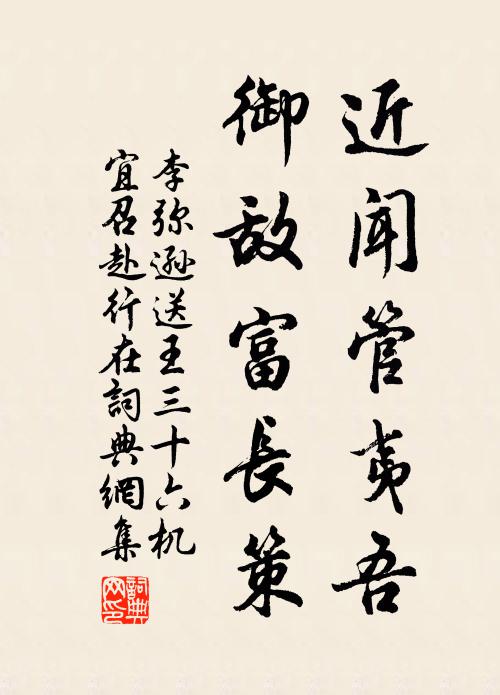 近闻管夷吾
御敌富長策
李弥遜送王三十六机
宜召赴行在詞典網集
詞典
网印